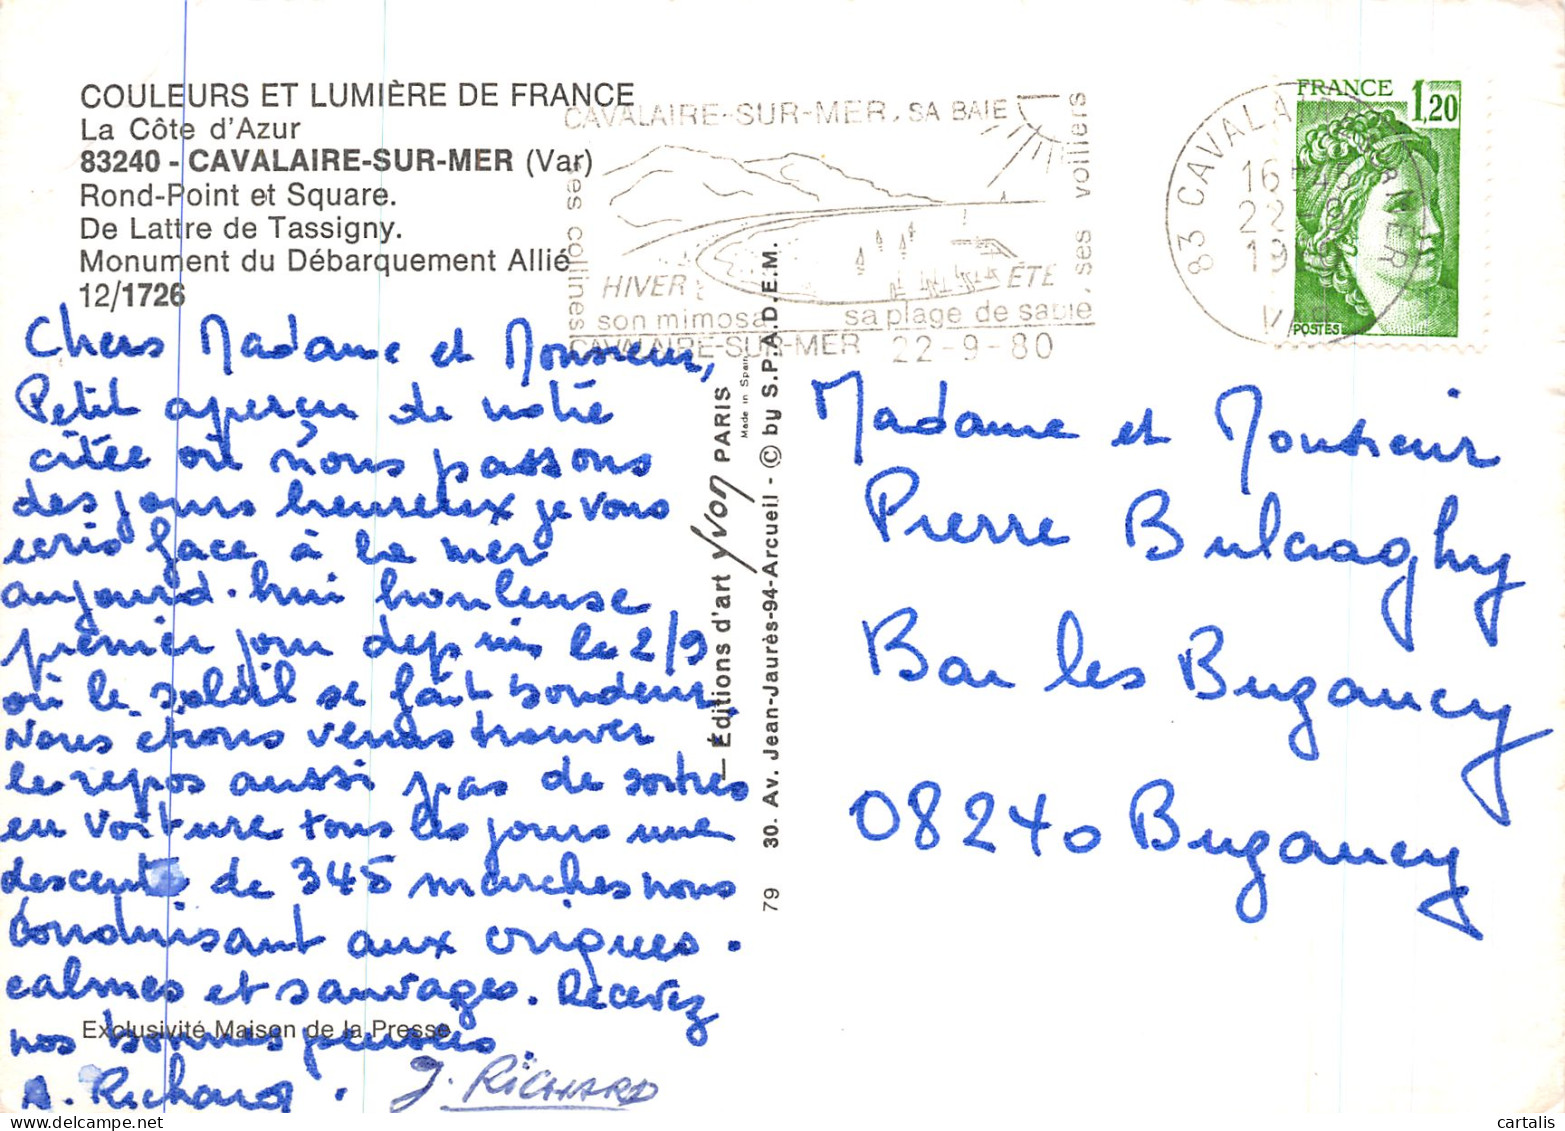 COULEURS ET LUMIÈRE DE FRANCE
La Côte d'Azur
83240 - CAVALAIRE-SUR-MER (Var)
Rond-Point et Square.
De Lattre de Tassigny.
Monument du Débarquement Allié
12/1726
CAVALAIRE-SUR-MER, SA BAIE
ses collines
ses voiliers
HIVER
son mimosa
ÉTÉ
sa plage de sable
CAVALAIRE-SUR-MER 22-9-80
83 CAVALAIRE S MER
16
22
19
VAR
FRANCE
1,20
POSTES
Chers Madame et Monsieur,
Petit aperçu de notre
citée où nous passons
des jours heureux je vous
ecris face à la mer
aujourd-hui houleuse
premier jour depuis le 2/9
où le soleil se fait boudeur,
Nous étions venus trouver
le repos aussi pas de sorties
en voiture tous les jours une
descente de 345 marches nous
conduisant aux criques.
calmes et sauvages. Recevez
nos bonnes pensées.
A. Richard. J. RICHARD
Exclusivité Maison de la Presse
— Éditions d'art Yvon PARIS
Made in Spain
79 30. Av. Jean-Jaurès-94-Arcueil - © by S.P.A.D.E.M.
Madame et Monsieur
Pierre Bulcraghy
Bar les Buzancy
08240 Buzancy
cartalis